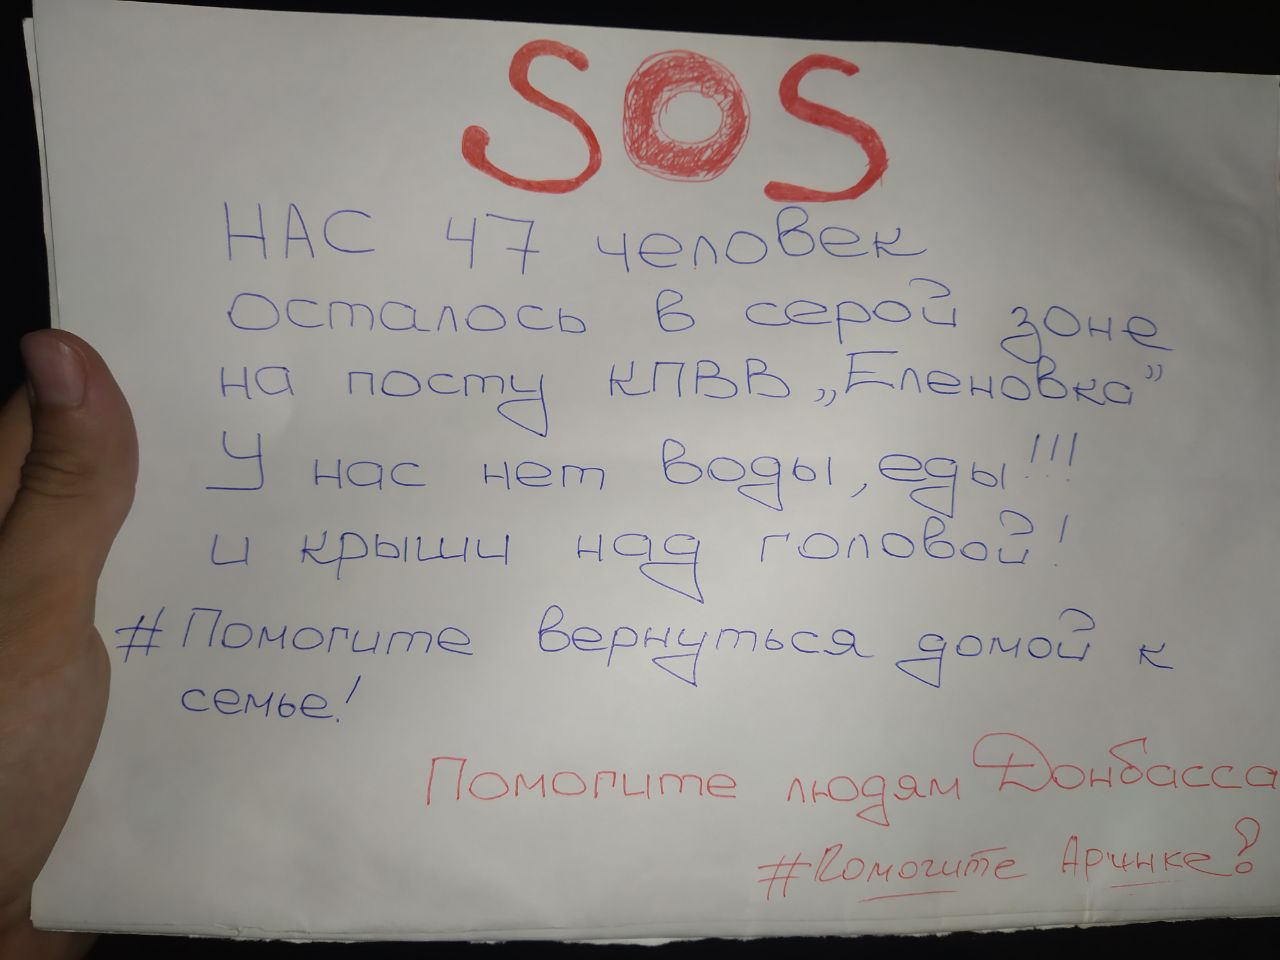 SOS
НАС 47 человек
осталось в серой зоне
на посту КПВВ „Еленовка”
У нас нет воды, еды!!!
и крыши над головой!
#Помогите вернуться домой к
семье!
Помогите людям Донбасса
#Помогите Аринке!